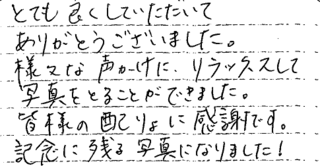 とても良くしていただいて
ありがとうございました。
様々な声かけに、リラックスして
写真をとることができました。
皆様の配りょに感謝です。
記念に残る写真になりました!